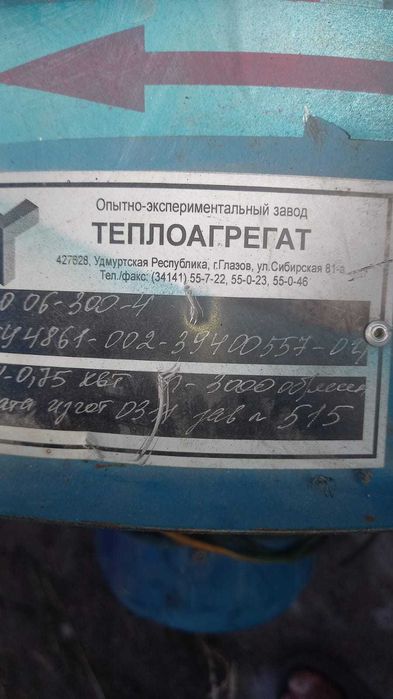 Опытно-экспериментальный завод
ТЕПЛОАГРЕГАТ
427628, Удмуртская Республика, г.Глазов, ул.Сибирская 81-а
Тел./факс: (34141) 55-7-22, 55-0-23, 55-0-46
О 06-300-4
У 4861-002-39400557-07
-0,75 квт п-3000 об/мин
ата изгот 03-11 зав № 515